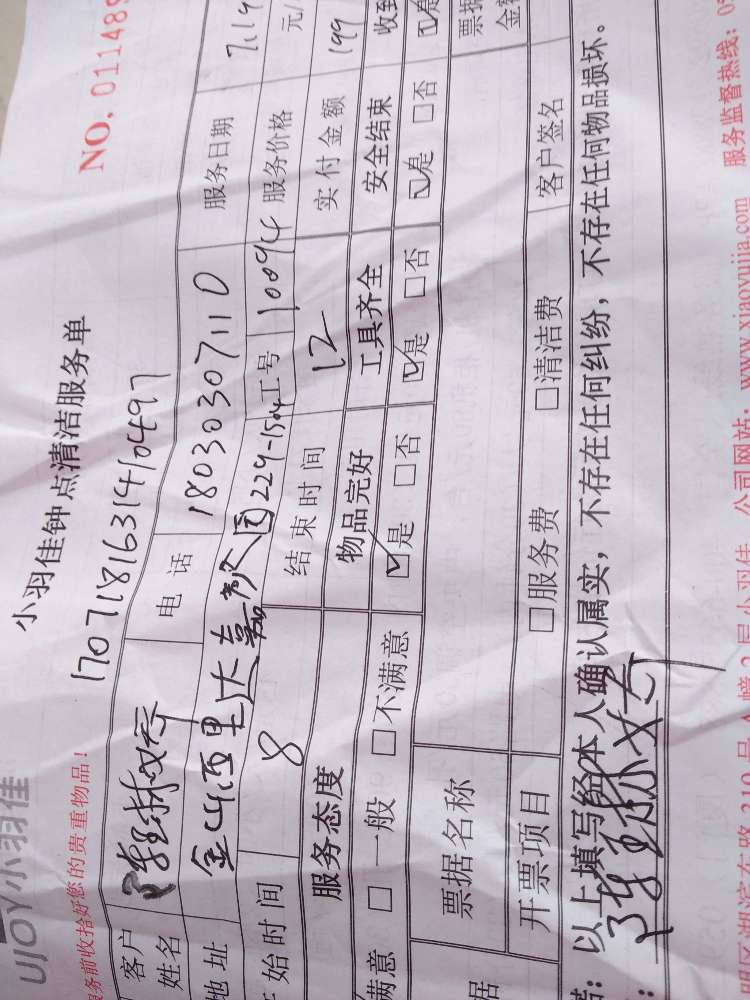 UJOY小羽佳
小羽佳钟点清洁服务单
务前收拾好您的贵重物品！
170718163141049
NO. 011489
客户姓名 电话 18030307110 服务日期 7.19
地址 229-1504 工号 10094 服务价格 元/
始时间 8 结束时间 12 实付金额 199
服务态度 物品完好 工具齐全 安全结束 收到
满意 □ 一般 □不满意 ☑是 □否 ☑是 □否 ☑是 □否 ☑是
据 票据名称 票据金额
开票项目 □服务费 □清洁费 客户签名
以上填写经本人确认属实，不存在任何纠纷，不存在任何物品损坏。
公司网站：www.xiaoyujia.com 服务监督热线：05